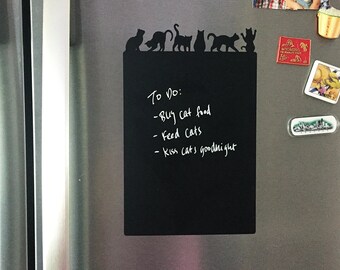 To Do:
- Buy cat food
- Feed cats
- Kiss cats goodnight